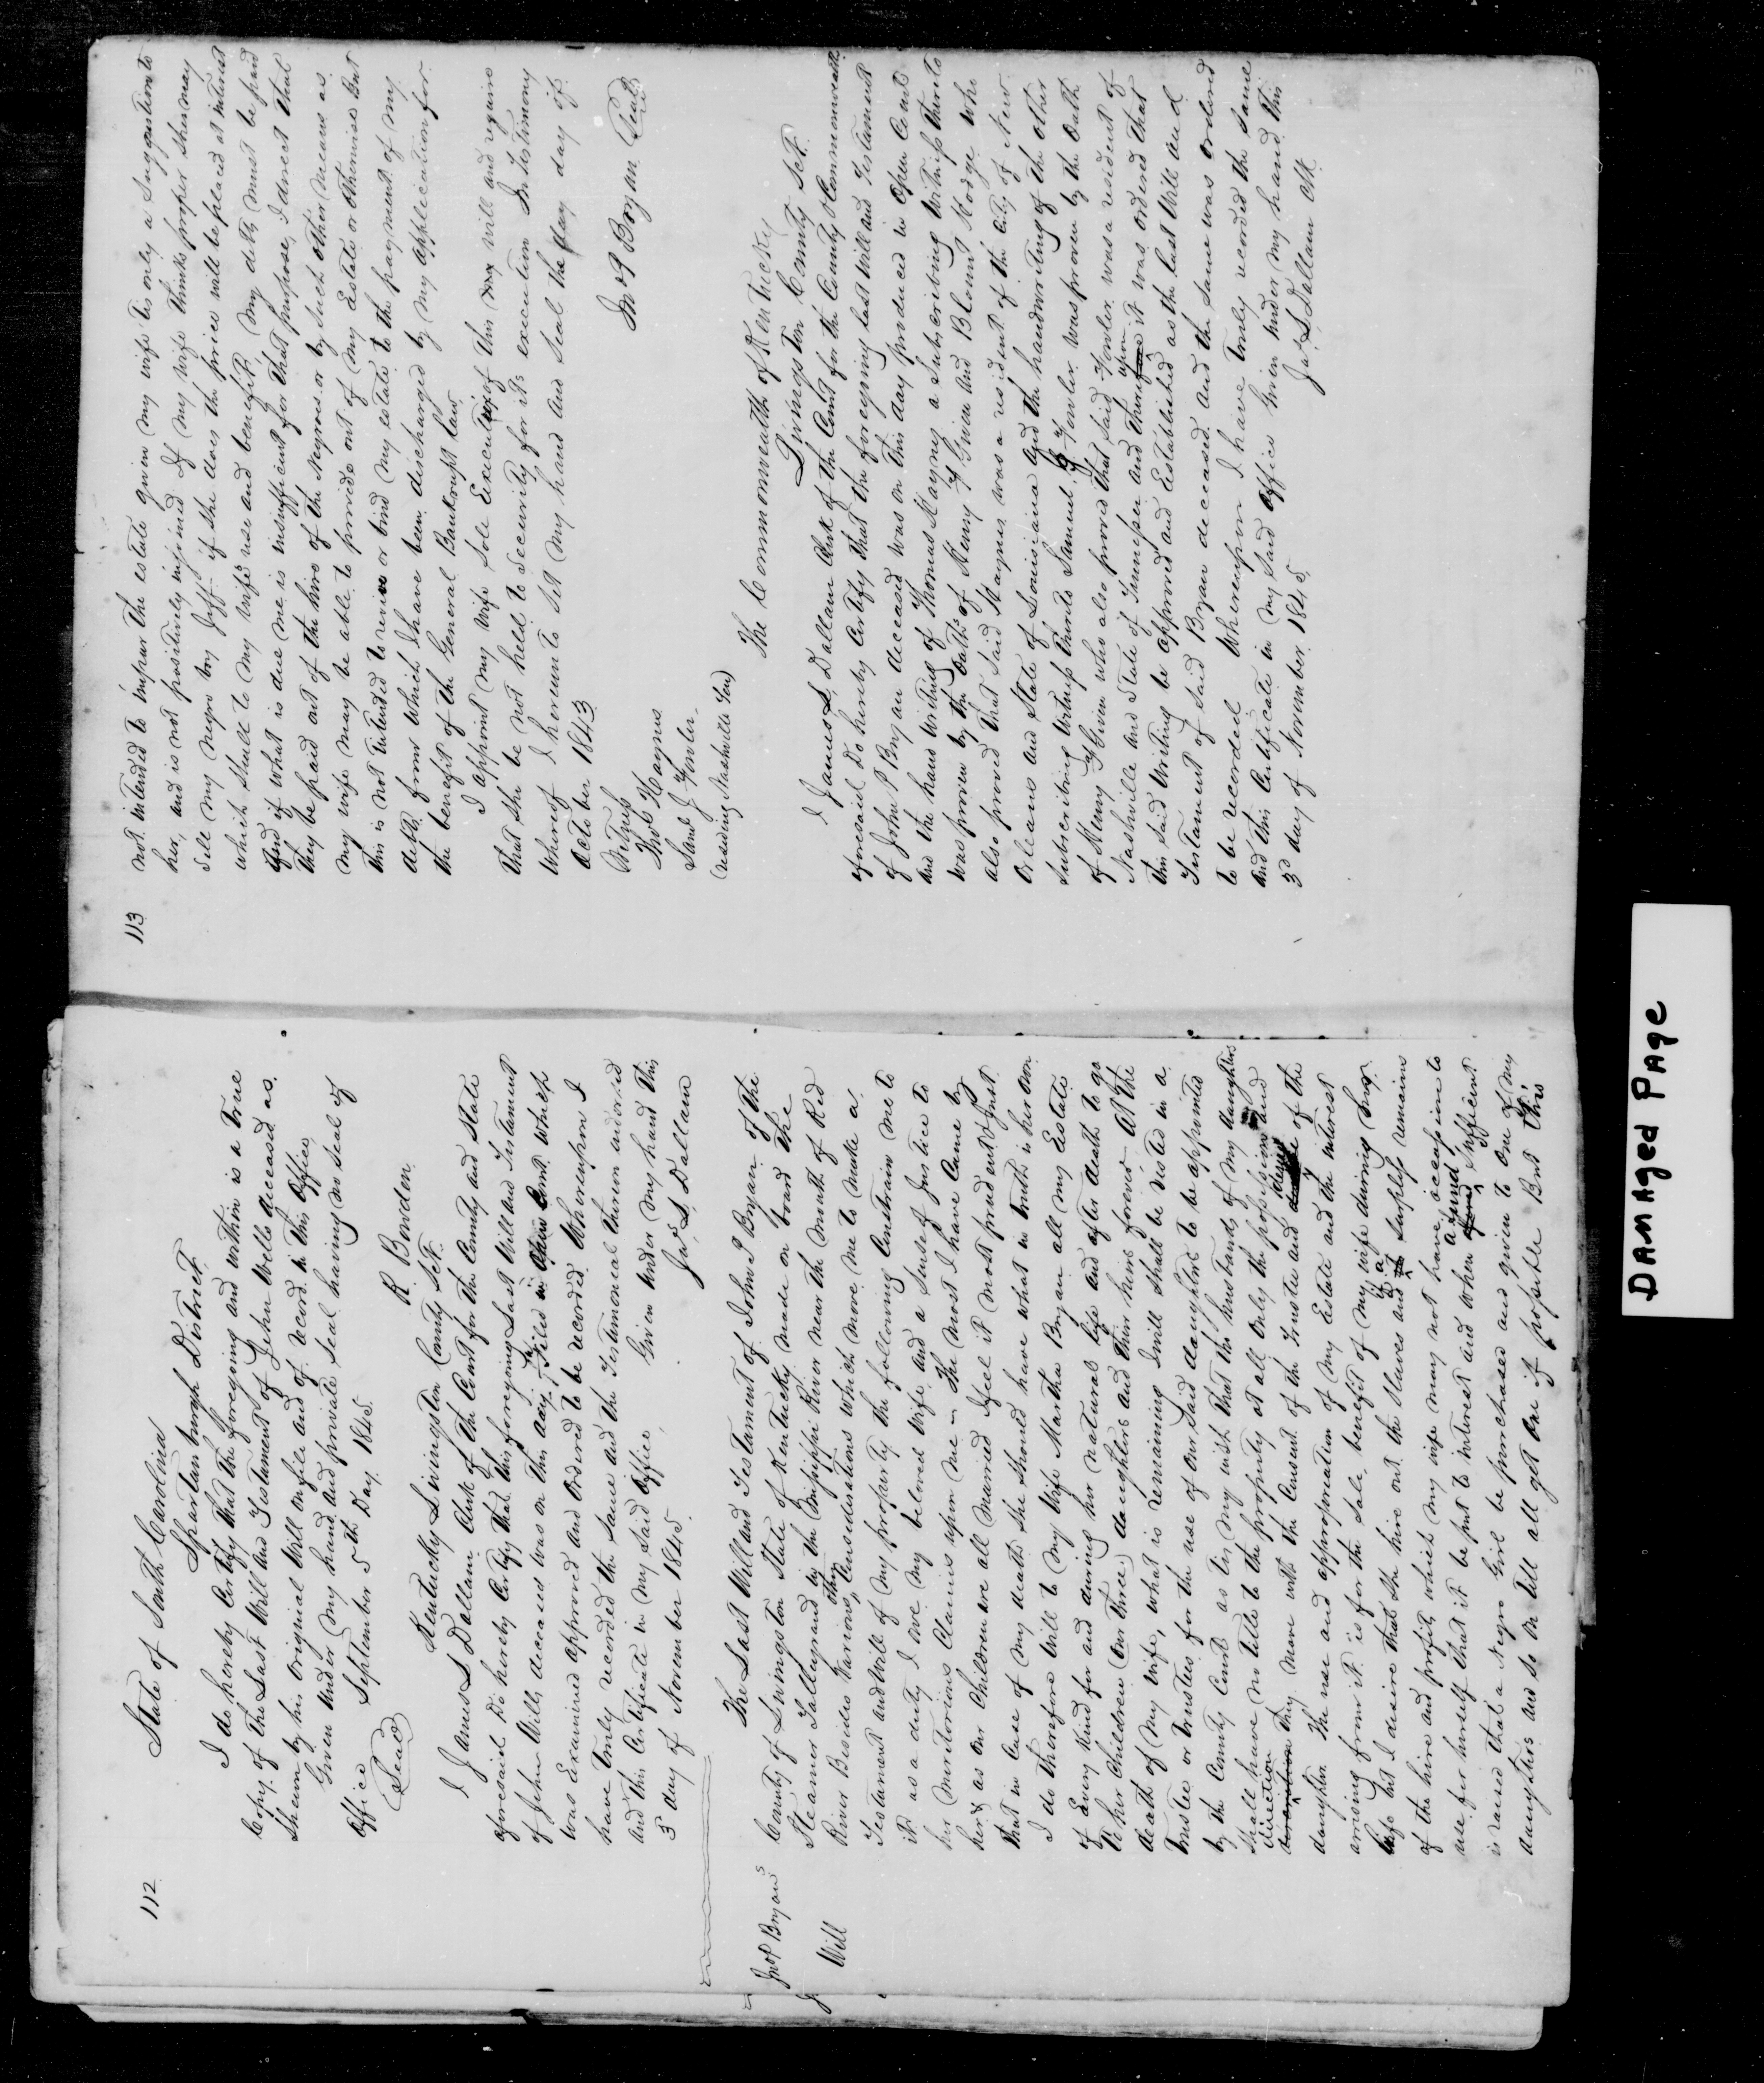 112
State of South Carolina
Spartanburgh District
I do hereby Certify that the foregoing and within is a True
Copy of the Last Will and Testament of John Wells deceased as
Shewn by his Original Will on file and of record in this Office
Given Under my hand and private Seal having no Seal of
Office September 5th Day 1845
(Seal) R Bowden
Kentucky Livingston County Sct.
I James L Dallam Clerk of the Court for the County and State
aforesaid Do hereby Certify that this foregoing Last Will and Testament
of John Wells deceased was on this day Filed in Open Court which
was Examined approved and Ordered to be recorded Whereupon I
have Truly recorded the same and the Testimonial therein indorsed
and this Certificate in my Said Office Given Under my hand this
3d day of November 1845.
Jas L Dallam
Jno P Bryans
Will
The Last Will and Testament of John P Bryan of the
County of Livingston State of Kentucky made on board the
Steamer Talleyrand in the Mississippi River near the Mouth of Red
River Besides Various other Considerations which move me to make a
Testament and Will of my property the following Constrain me to
it as a duty I owe my beloved Wife and a Sense of Justice to
her meritorious Claims upon me - The most I have Came by
her & as our Children are all Married I feel it most prudent & Just
that in Case of my death she should have what in truth is her own
I do therefore Will to my Wife Martha Bryan all my Estate
of Every Kind for and during her natural life and after death to go
to her Children (our three) daughters and their heirs forever At the
death of my wife, what is remaining I will shall be vested in a
Trustee or Trustees for the use of our Said daughters to be appointed
by the County Court as tis my wish that the husbands of my daughters
Shall have no title to the property at all Only the possession and
direction they move with the Consent of the Trustee and of the
daughter The use and appropriation of my Estate and the interest
arising from it is for the Sole benefit of my wife during her
life but I desire that she hire out the Slaves and if a Surplus remains
of the hire and profits which my wife may not have occasion to
use for herself that it be put to interest and when a fund Sufficient
is raised that a Negro Girl be purchased and given to One of my
daughters and so on till all get One if possible But this
113
not intended to impair the estate given my wife tis only a Suggestion to
her, and is not positively enjoined If my wife thinks proper she may
sell my negro boy Jeff if she does the price will be placed at interest
which shall be to my wife's use and benefit. My debts must be paid
And if what is due me is insufficient for that purpose, I direct that
they be paid out of the hire of the Negroes or by Such other means as
my wife may be able to provide out of my Estate or Otherwise But
this is not intended to revive or bind my estate to the payment of my
debts from which I have been discharged by my application for
the benefit of the General Bankrupt law
I appoint my wife Sole Executrix of this my will and require
that she be not held to Security for its execution In testimony
Whereof I hereunto Set my hand and Seal the day of
October 1843
Jno P Bryan Seal
Witness
Thos Haynes
Saml J Fowler
(residing Nashville Ten)
The Commonwealth of Kentucky
Livingston County Sct.
I James L Dallam Clerk of the Court for the County & Commonwealth
aforesaid Do hereby Certify that the foregoing last Will and Testament
of John P Bryan deceased was on this day produced in Open Court
and the hand writing of Thomas Haynes a Subscribing Witness thereto
was proven by the Oaths of Henry F Given and Blount Hodge who
also proved that Said Haynes was a resident of the City of New
Orleans and State of Louisiana and the handwriting of the Other
Subscribing Witness thereto Samuel J Fowler was proven by the Oath
of Henry F Given who also proved that Said Fowler was a resident of
Nashville and State of Tennessee and thereupon it was ordered that
this Said Writing be approved and Established as the last Will and
Testament of Said Bryan deceased And the same was ordered
to be recorded Whereupon I have Truly recorded the Same
and this Certificate in my Said office Given under my hand this
3d day of November 1845.
Jas L Dallam Clk
DAMAged PAge